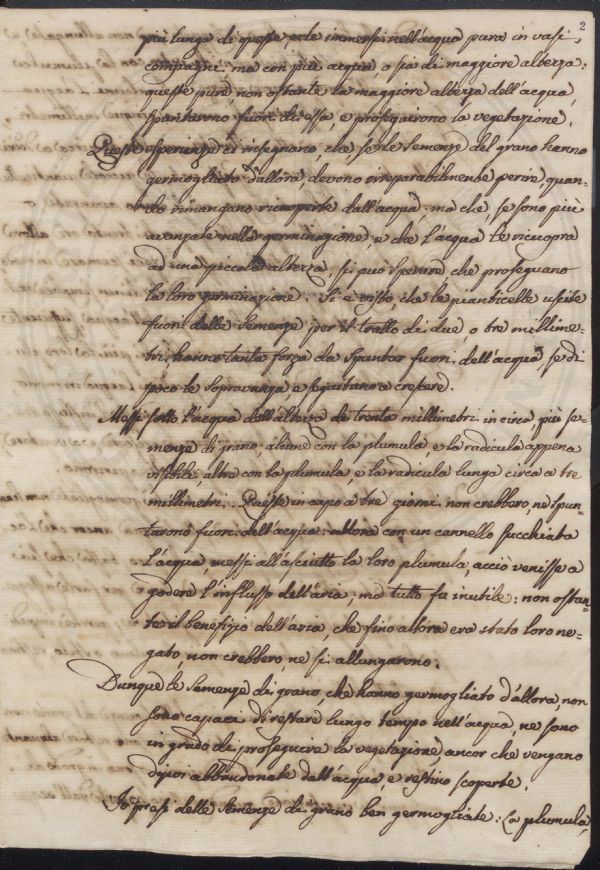 2
più lunga di queste, e le immersi nell'acqua pura in vasi
compagni; ma con più acqua, o sia di maggiore altezza:
queste pure, non ostante la maggiore altezza dell'acqua,
spuntarono fuori di essa, e proseguirono la vegetazione.
Queste esperienze ci insegnano, che, se le semenze del grano hanno
germogliato d'allora, devono irreparabilmente perire, quan-
do rimangano ricoperte dall'acqua; ma che, se sono più
avanzate nella germinazione, e che l'acqua le ricuopra
ad una piccola altezza, si può sperare che proseguano
la loro germinazione. Si è visto che le pianticelle uscite
fuori delle semenze per il tratto di due, o tre millime-
tri, hanno tanta forza da spuntar fuori dell'acqua, se di
poco le sopravanza, e seguitano a crescere.
Messi sotto l'acqua dell'altezza di trenta millimetri in circa, più se-
menze di grano, alcune con la plumula, e la radicula appena
visibile: altre con la plumula, e la radicula lunga circa a tre
millimetri. Queste in capo a tre giorni non crebbero, ne spun-
tarono fuori dell'acqua: allora con un cannello succhiata
l'acqua, messi all'asciutto la loro plumula, acciò venisse a
godere l'influsso dell'aria; ma tutto fu inutile: non ostan-
te il benefizio dell'aria, che fino allora era stato loro ne-
gato, non crebbero, ne si allungarono.
Dunque le semenze di grano, che hanno germogliato d'allora, non
sono capaci di restare lungo tempo nell'acqua, ne sono
in grado di proseguire la vegetazione, ancor che vengano
dipoi abbandonate dall'acqua, e restino scoperte.
Io presi delle semenze di grano ben germogliate: la plumula,